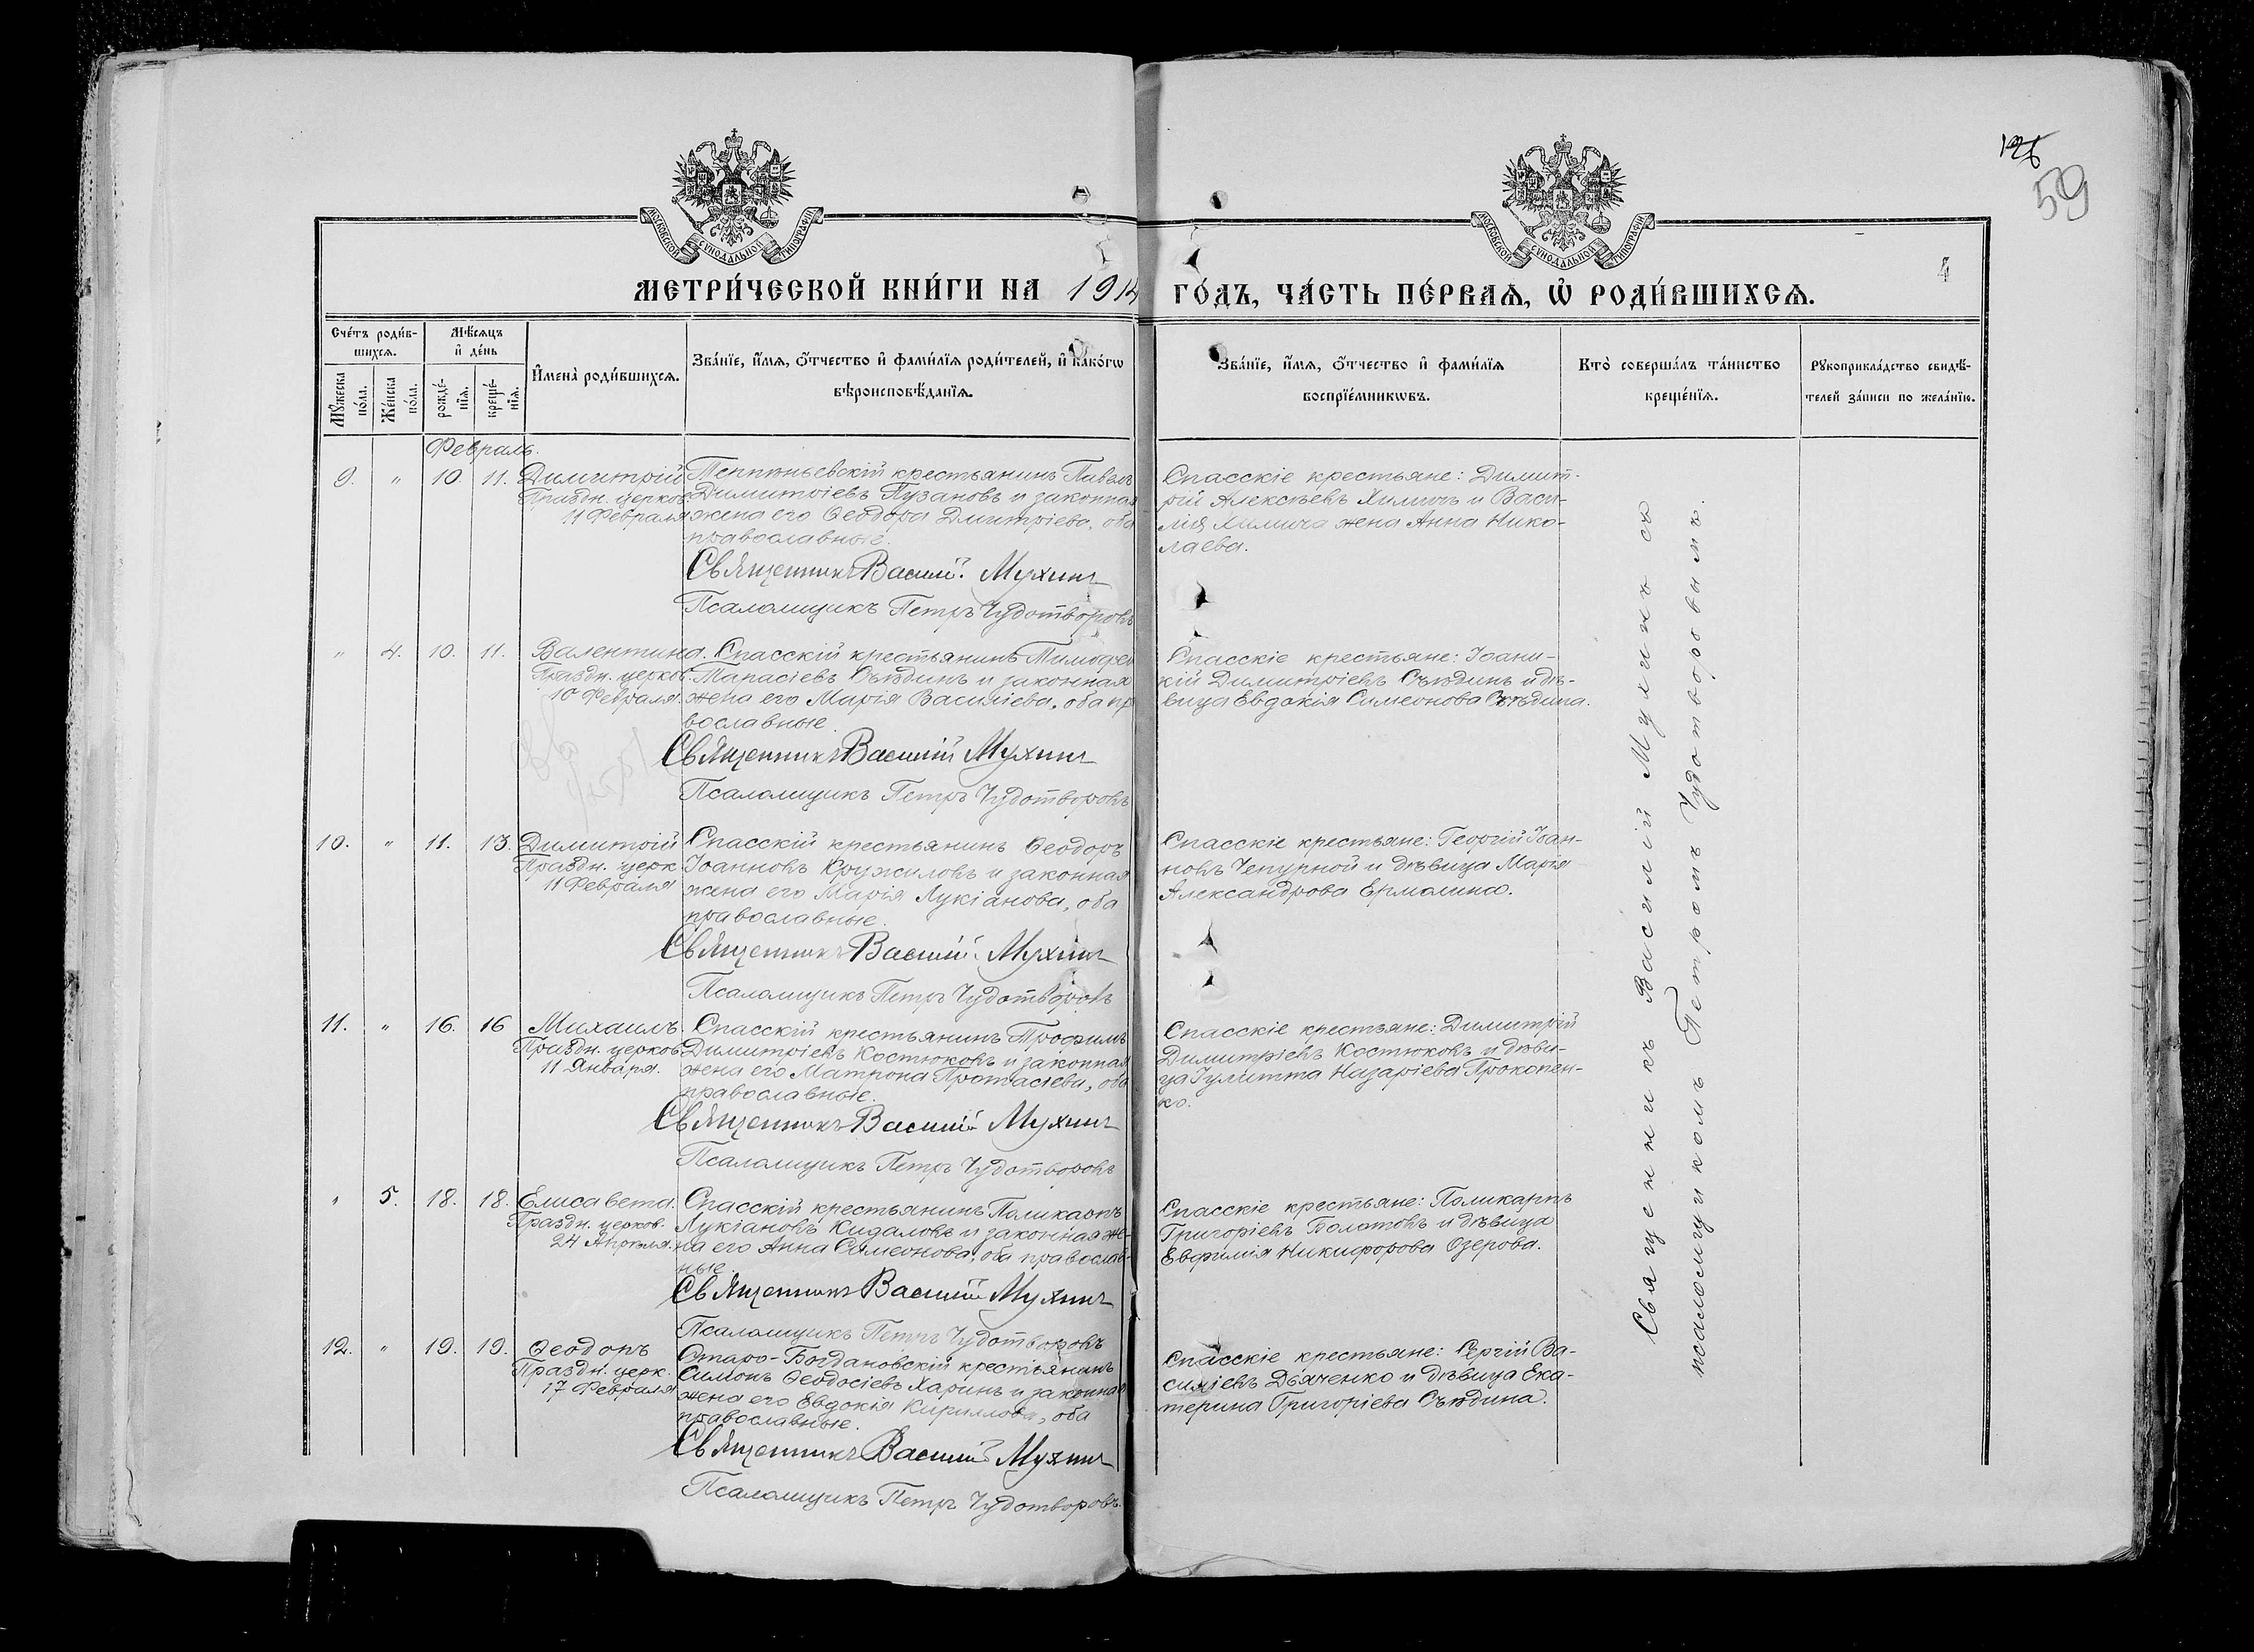 126
59
4
МОСКОВСКОЙ СѴНОДАЛЬНОЙ ТИПОГРАФІИ
МОСКОВСКОЙ СѴНОДАЛЬНОЙ ТИПОГРАФІИ
МЕТРИ́ЧЕСКОЙ КНИ́ГИ НА 1914 ГО́ДЪ, ЧА́СТЬ ПЕ́РВАѦ, Ѡ҆ РОДИ́ВШИХСѦ.
Сче́тъ роди́в-
шихсѧ.
Мꙋ́жеска по́ла.
Же́нска по́ла.
Мѣ́сѧцъ
и҆ де́нь
рожде́-
нїѧ.
креще́-
нїѧ.
И҆мена̀ роди́вшихсѧ.
Зва́нїе, и҆́мѧ, ѻ҆́тчество и҆ фами́лїѧ роди́телей, и҆ како́гѡ
вѣроисповѣ́данїѧ.
Зва́нїе, и҆́мѧ, ѻ҆́тчество и҆ фами́лїѧ
воспрїе́мникѡвъ.
Кто̀ соверша́лъ та́инство
креще́нїѧ.
Рꙋкоприкла́дство свидѣ́-
телей за́писи по жела́нїю.
Февраль.
9. " 10. 11. Димитрій
Праздн. церков.
11 Февраля
Димитріевъ Пузановъ и законная
жена его Ѳеодора Дмитріева, оба
православные.
Священникъ Василій Мухинъ
Псаломщикъ Петръ Чудотворовъ
Спасскіе крестьяне: Димит-
рій Алексѣевъ Химичъ и Васи-
лія Химича жена Анна Нико-
лаева.
" 4. 10. 11. Валентина.
Праздн. церков.
10 Февраля.
Спасскій крестьянинъ Тимофей
Танасіевъ Съѣдинъ и законная
жена его Марія Василіева, оба пр
вославные.
Священникъ Василій Мухинъ
Псаломщикъ Петръ Чудотворовъ
Спасскіе крестьяне: Іоани-
кій Димитріевъ Съѣдинъ и дѣ-
вица Евдокія Симеонова Съѣдина.
10. " 11. 13. Димитрій
Праздн. церк.
11 Февраля
Спасскій крестьянинъ Ѳеодоръ
Іоанновъ Кружиловъ и законная
жена его Марія Лукіанова, оба
православные.
Священникъ Василій Мухинъ
Псаломщикъ Петръ Чудотворовъ
Спасскіе крестьяне: Георгій Іоан-
новъ Чепурной и дѣвица Марія
Александрова Ермолина.
11. " 16. 16 Михаилъ.
Праздн. церков.
11 Января.
Спасскій крестьянинъ Трофимъ
Димитріевъ Костюковъ и законная
жена его Матрона Протасіева, оба
православные.
Священникъ Василій Мухинъ
Псаломщикъ Петръ Чудотворовъ
Спасскіе крестьяне: Димитрій
Димитріевъ Костюковъ и дѣви-
ца Іулитта Назаріева Прокопен-
ко.
" 5. 18. 18. Елисавета.
Праздн. церков.
24 Апрѣля.
Спасскій крестьянинъ Поликарпъ
Лукіановъ Кидаловъ и законная же-
на его Анна Симеонова, оба православ-
ные.
Священникъ Василій Мухинъ
Псаломщикъ Петръ Чудотворовъ
Спасскіе крестьяне: Поликарпъ
Григоріевъ Болотовъ и дѣвица
Евфимія Никифорова Озерова.
12. " 19. 19. Ѳеодоръ
Праздн. церк.
17 Февраля
Старо-Богдановскій крестьянинъ
Симонъ Ѳеодосіевъ Харинъ и законная
жена его Евдокія Кириллова, оба
православные.
Священникъ Василій Мухинъ
Псаломщикъ Петръ Чудотворовъ.
Спасскіе крестьяне: Сергій Ва-
силіевъ Дьяченко и дѣвица Ека-
терина Григоріева Съѣдина.
Священникъ Василій Мухинъ съ
псаломщикомъ Петромъ Чудотворовымъ.